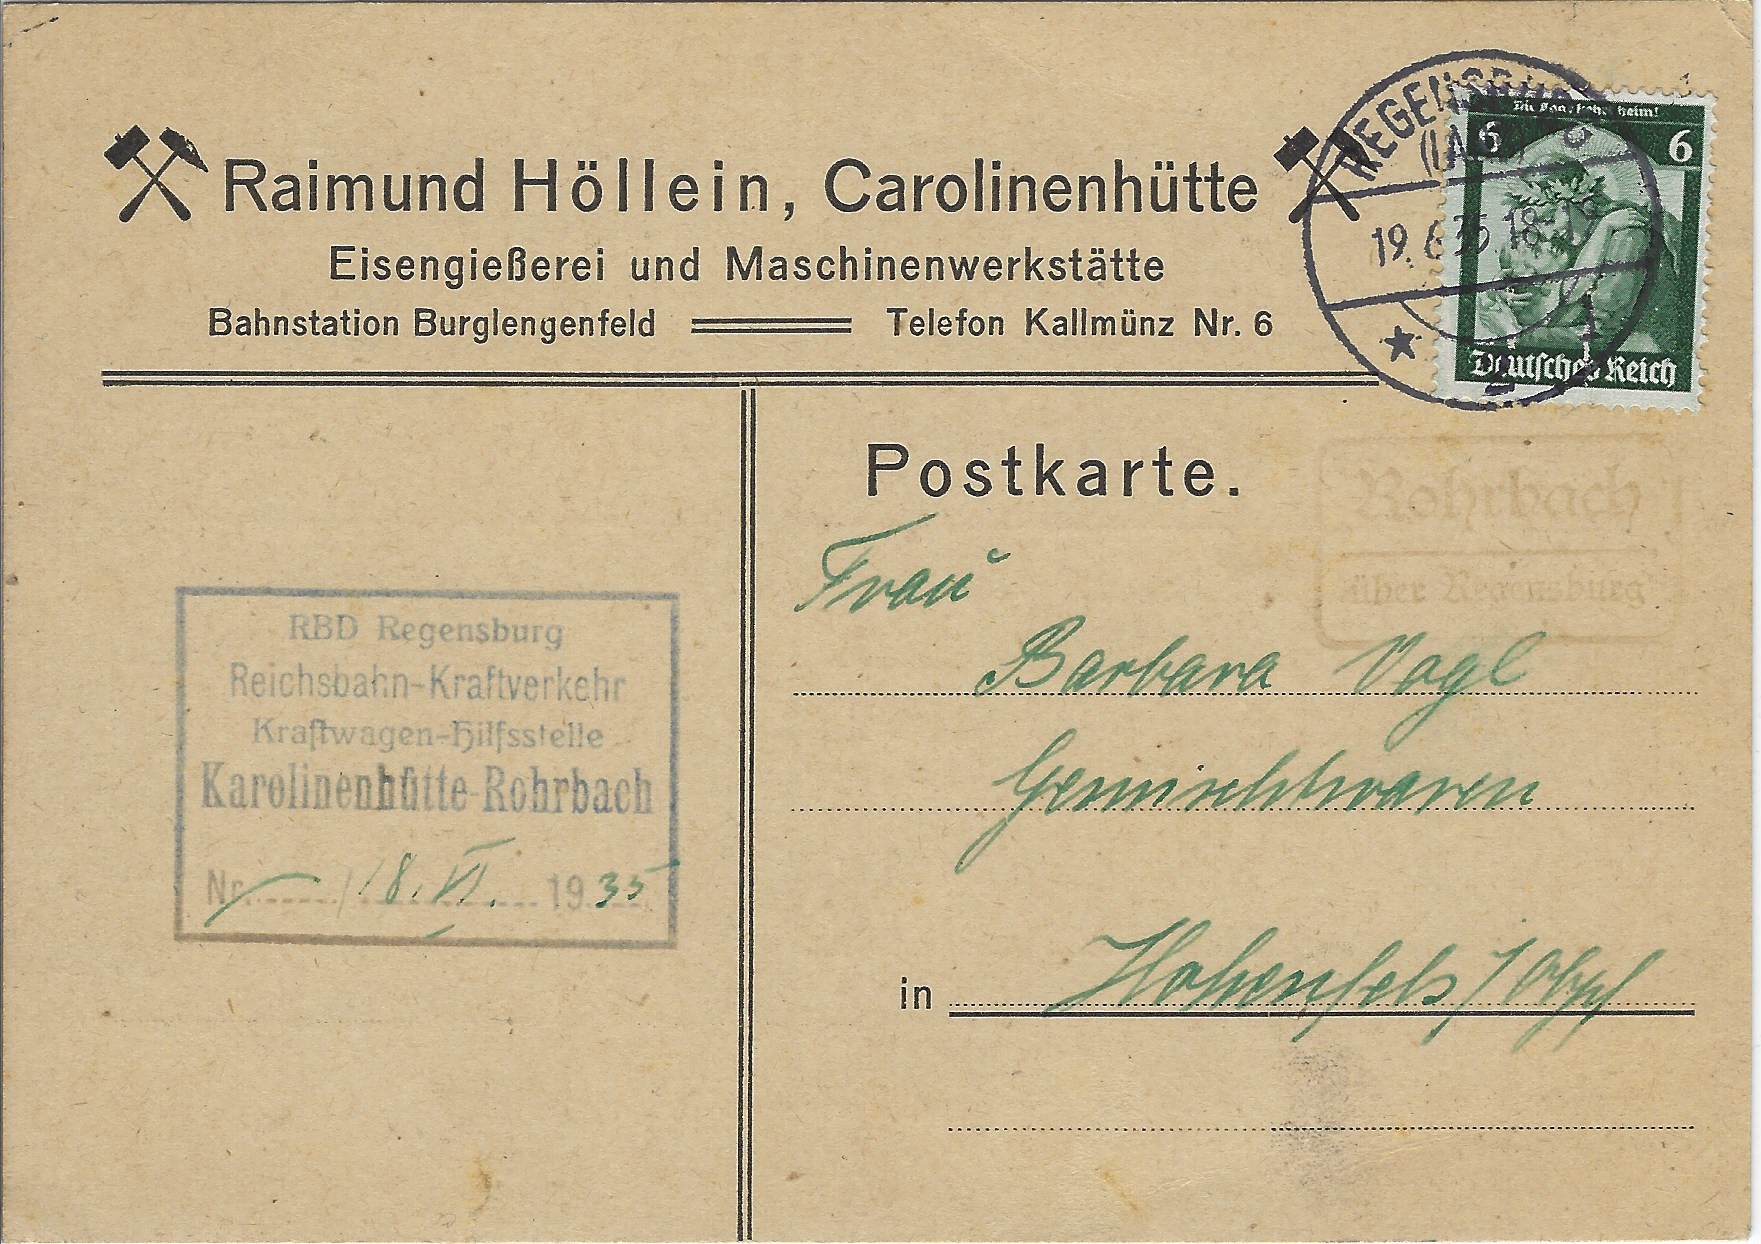 Raimund Höllein, Carolinenhütte
Eisengießerei und Maschinenwerkstätte
Bahnstation Burglengenfeld Telefon Kallmünz Nr. 6
REGENSBURG
19.6.35 18-19
6 6
Deutsches Reich
Postkarte.
Rohrbach
über Regensburg
Frau
Barbara Vogl
Gemischtwaren
in Hohenfels / Obpf
RBD Regensburg
Reichsbahn-Kraftverkehr
Kraftwagen-Hilfsstelle
Karolinenhütte-Rohrbach
Nr. / 18. VI. 1935